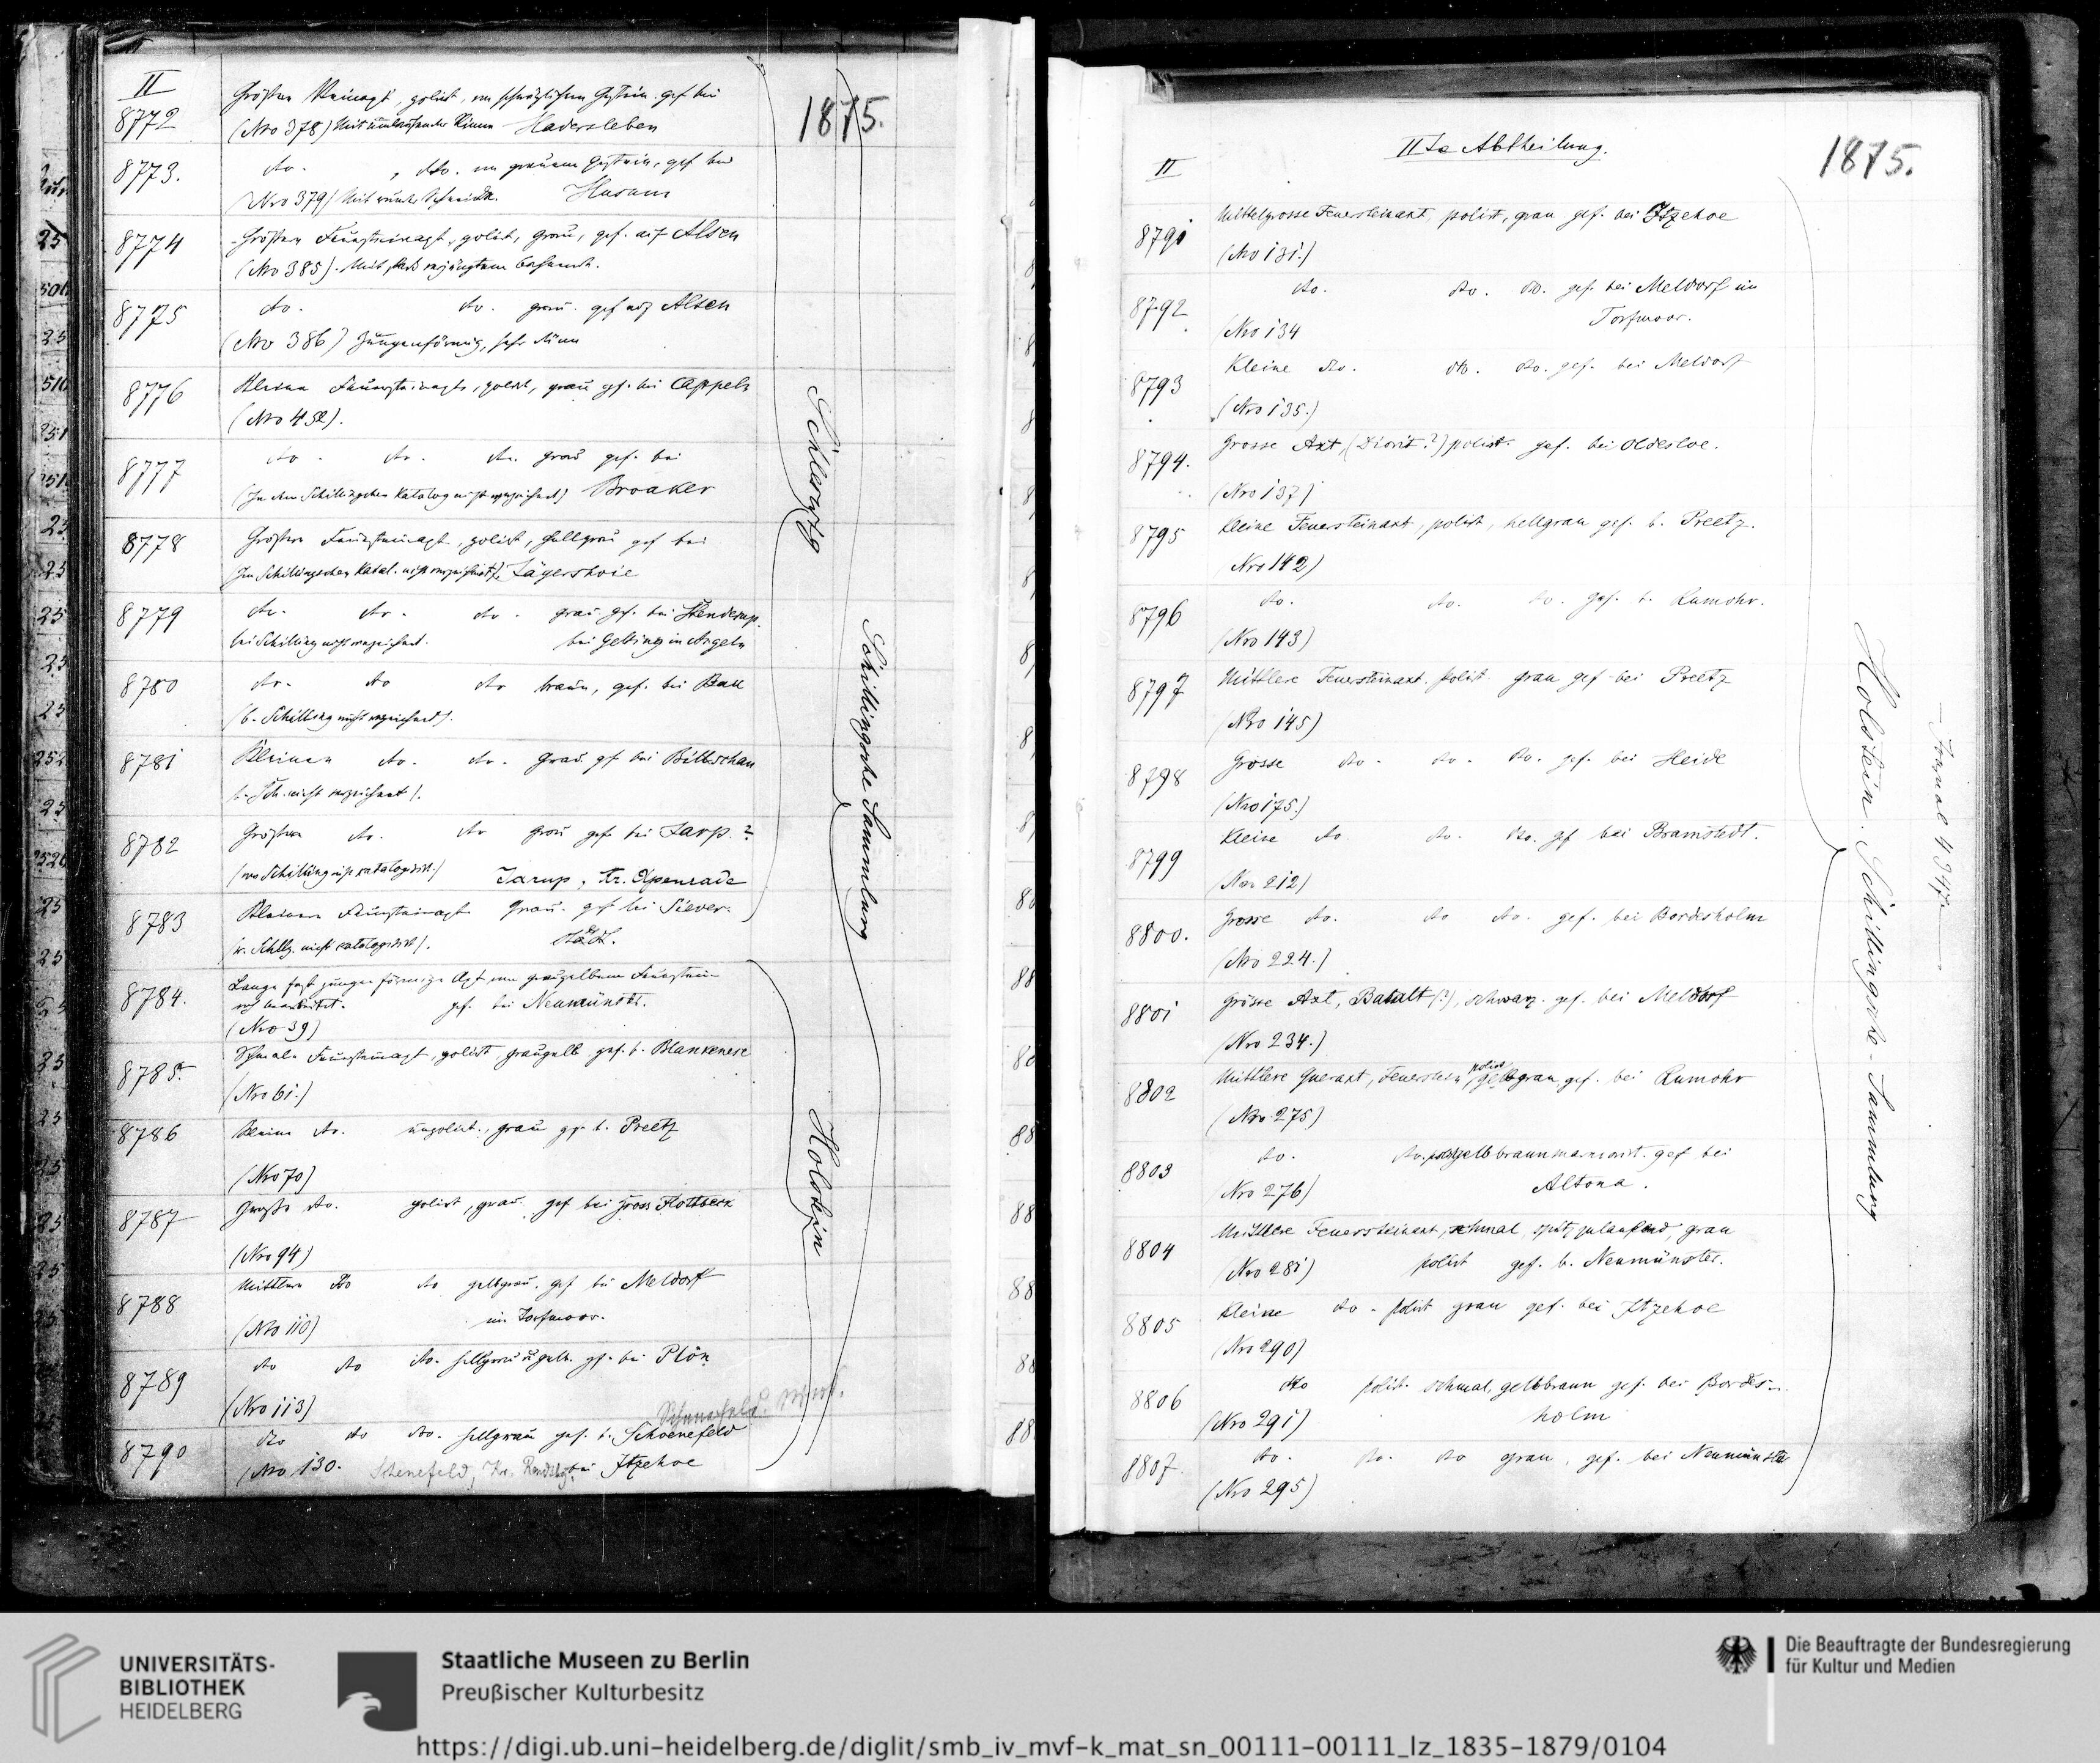 II
1875.
8772
Größere Steinaxt, polirt, von schwärzlichem Gestein. gef. bei
(Nro 378) Mit umlaufender Rinne Hadersleben
8773.
do. , do. von grauem Gestein, gef. bei
(Nro 379) Mit runder Schneide. Husum
8774
Größere Feuersteinaxt, polirt, grau, gef. auf Alsen
(Nro 385). Mit stark verjüngtem
8775
do. do. grau. gef. auf Alsen
(Nro 386) Zungenförmig, sehr dünn
8776
Kleine Feuersteinaxt, polirt, grau gef. bei Cappeln
(Nro 452).
8777
do. do. do. grau gef. bei
(In dem Schillingschen Katalog nicht verzeichnet) Broaker
8778
Größere Feuersteinaxt, polirt, hellgrau gef. bei
(Im Schillingschen Katal. nicht verzeichnet) Jägershoie
8779
do. do. do. grau gef. bei
bei Schilling nicht verzeichnet. bei Gelting in Angeln
8780
do. do do braun, gef. bei Bau
(b. Schilling nicht verzeichnet).
8781
Kleinere do. do. grau gef. bei Bilschau
(b. Sch. nicht verzeichnet).
8782
Größere do. do grau gef. bei Jarp. ?
(von Schilling nicht katalogisirt.) Jarup, Kr. Apenrade
8783
Kleinere Feuersteinaxt grau. gef. bei Siever-
(v. Schllg. nicht katalogisirt). städt.
8784.
Lange fast zungenförmige Axt von graugelbem Feuerstein
roh bearbeitet. gef. bei Neumünster.
(Nro 39)
8785.
Schmale Feuersteinaxt, polirt, graugelb gef. b. Blankenese
(Nro 61.)
8786
Kleine do. unpolirt., grau gef. b. Preetz
(Nro 70)
8787
Große do. polirt, grau. gef. bei gross Flottbeck
(Nro 94)
8788
Mittlere do do gelbgrau, gef. bei Meldorf
(Nro 110) im Torfmoor.
8789
do do do. hellgrau u gelb. gef. bei Plön
(Nro 113)
8790
do do do. hellgrau gef. b. Schoenefeld
(Nro 130. Schenefeld, Kr. Rendsbg bei Itzehoe
Schleswig
Holstein
Schillingsche Sammlung
IIte Abtheilung.
1875.
II
8791
Mittelgrosse Feuersteinaxt, polirt, grau gef. bei Itzehoe
(Nro 131.)
8792
do. do. do. gef. bei Meldorf im
(Nro 134 Torfmoor.
8793
Kleine do. do. do. gef. bei Meldorf
(Nro 135.)
8794.
Grosse Axt, (Diorit?) polirt. gef. bei Oldesloe.
(Nro 137)
8795
Kleine Feuersteinaxt, polirt, hellgrau gef. b. Preetz.
(Nro 142)
8796
do. do. do. gef. b. Rumohr.
(Nro 143)
8797
Mittlere Feuersteinaxt. polirt. grau gef. bei Preetz
(Nro 145)
8798
Grosse do. do. do. gef. bei Heide
(Nro 175.)
8799
Kleine do. do. do. gef. bei Bramstedt.
(Nro 212)
8800.
Grosse do. do do. gef. bei Bordesholm
(Nro 224.)
8801
Grosse Axt, Basalt (?), schwarz. gef. bei Meldorf
(Nro 234.)
8802
Mittlere Queraxt, Feuerstein, polirt gelbgrau, gef. bei Rumohr
(Nro 275)
8803
do. do. polirt gelbbraun marmorirt. gef. bei
(Nro 276) Altona.
8804
Mittlere Feuersteinaxt, schmal, spitz zulaufend, grau
(Nro 281) polirt gef. b. Neumünster.
8805
Kleine do. polirt grau gef. bei Itzehoe
(Nro 290)
8806
do polirt. schmal, gelbbraun gef. bei Bordes-
(Nro 291) holm
8807.
do. do. do grau, gef. bei Neumünster
(Nro 295)
Holstein. Schillingsche-Sammlung
Journal 4347.
UNIVERSITÄTS-
BIBLIOTHEK
HEIDELBERG
Staatliche Museen zu Berlin
Preußischer Kulturbesitz
Die Beauftragte der Bundesregierung
für Kultur und Medien
https://digi.ub.uni-heidelberg.de/diglit/smb_iv_mvf-k_mat_sn_00111-00111_lz_1835-1879/0104